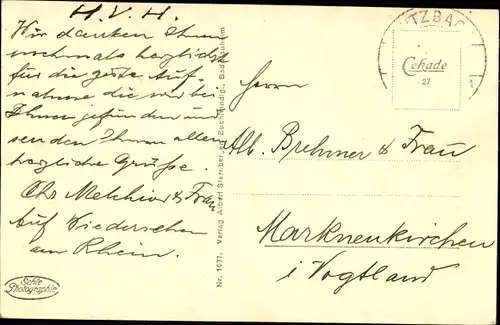 H. V. H.
Wir danken Ihnen
nochmals herzlichst
für die gute Auf-
nahme die wir bei
Ihnen gefunden und
senden Ihnen allen
herzliche Grüße.
Chr. Melchior & Frau
Auf Wiedersehen
am Rhein.
Echte
Photographie
Nr. 1077. Verlag Albert Buchhandlg., Bad
UTZBAC
Cekade
27
Herrn
Alb. Brehmer & Frau
Markneukirchen
i Vogtland